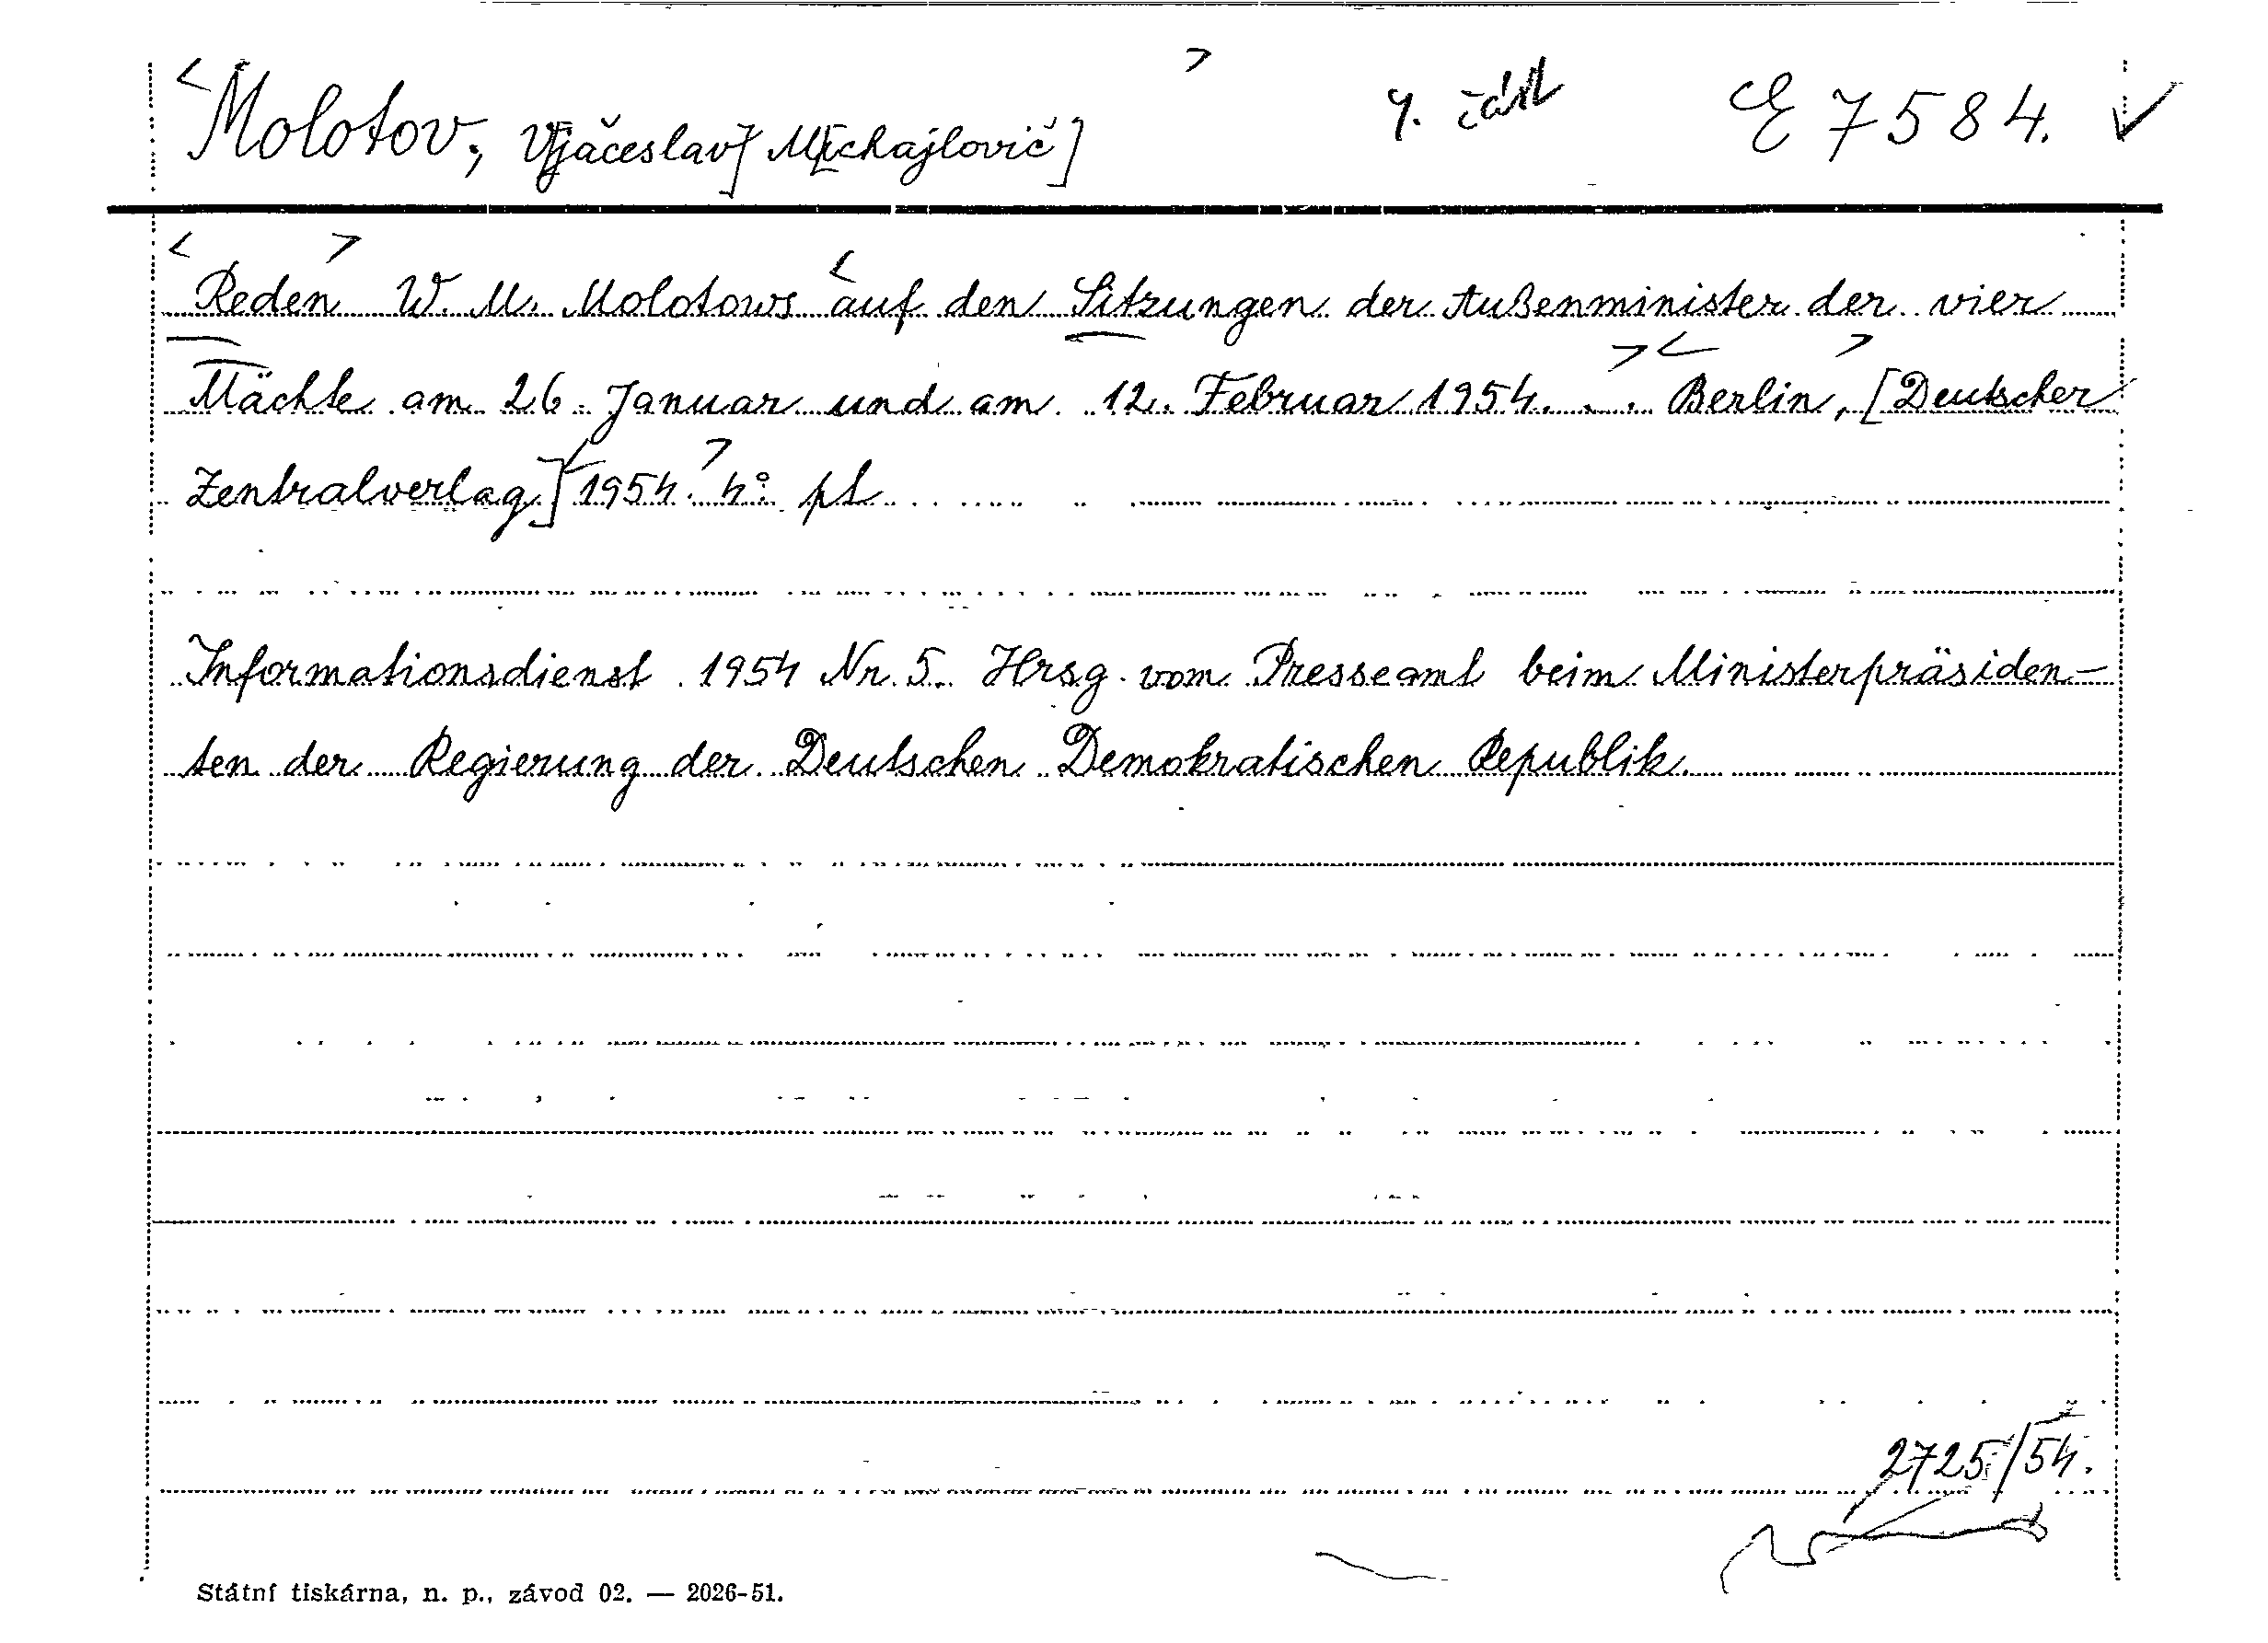 Molotov, V[jačeslav] M[ichajlovič] 4. část E 7584.
Reden W. M. Molotows auf den Sitzungen der Außenminister der vier
Mächte am 26. Januar und am 12. Februar 1954. . . Berlin, [Deutscher
Zentralverlag] 1954. 4°. pt
Informationsdienst 1954 Nr. 5. Hrsg. vom Presseamt beim Ministerpräsiden-
ten der Regierung der Deutschen Demokratischen Republik.
2725/54.
Státní tiskárna, n. p., závod 02. — 2026-51.